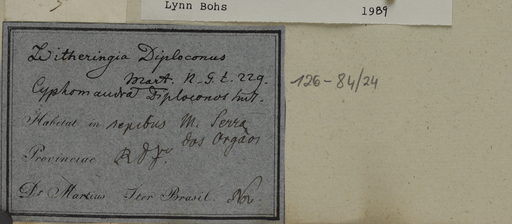 Lynn Bohs 1989
Witheringia Diploconus
Mart. N. G. t. 229.
Cyphomandra Diploconos Mt.
126-84/24
Habitat in sepibus M. Serra
dos Orgaos
Provinciae R d J.
Dr Martius Iter Brasil.